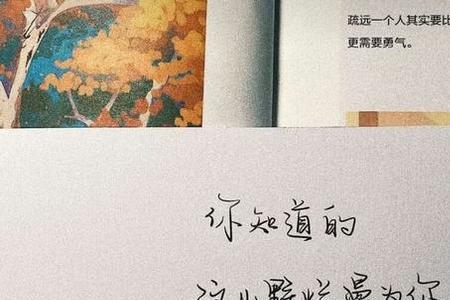 疏远一个人其实要比
更需要勇气。
你知道的
这小野烂漫为你